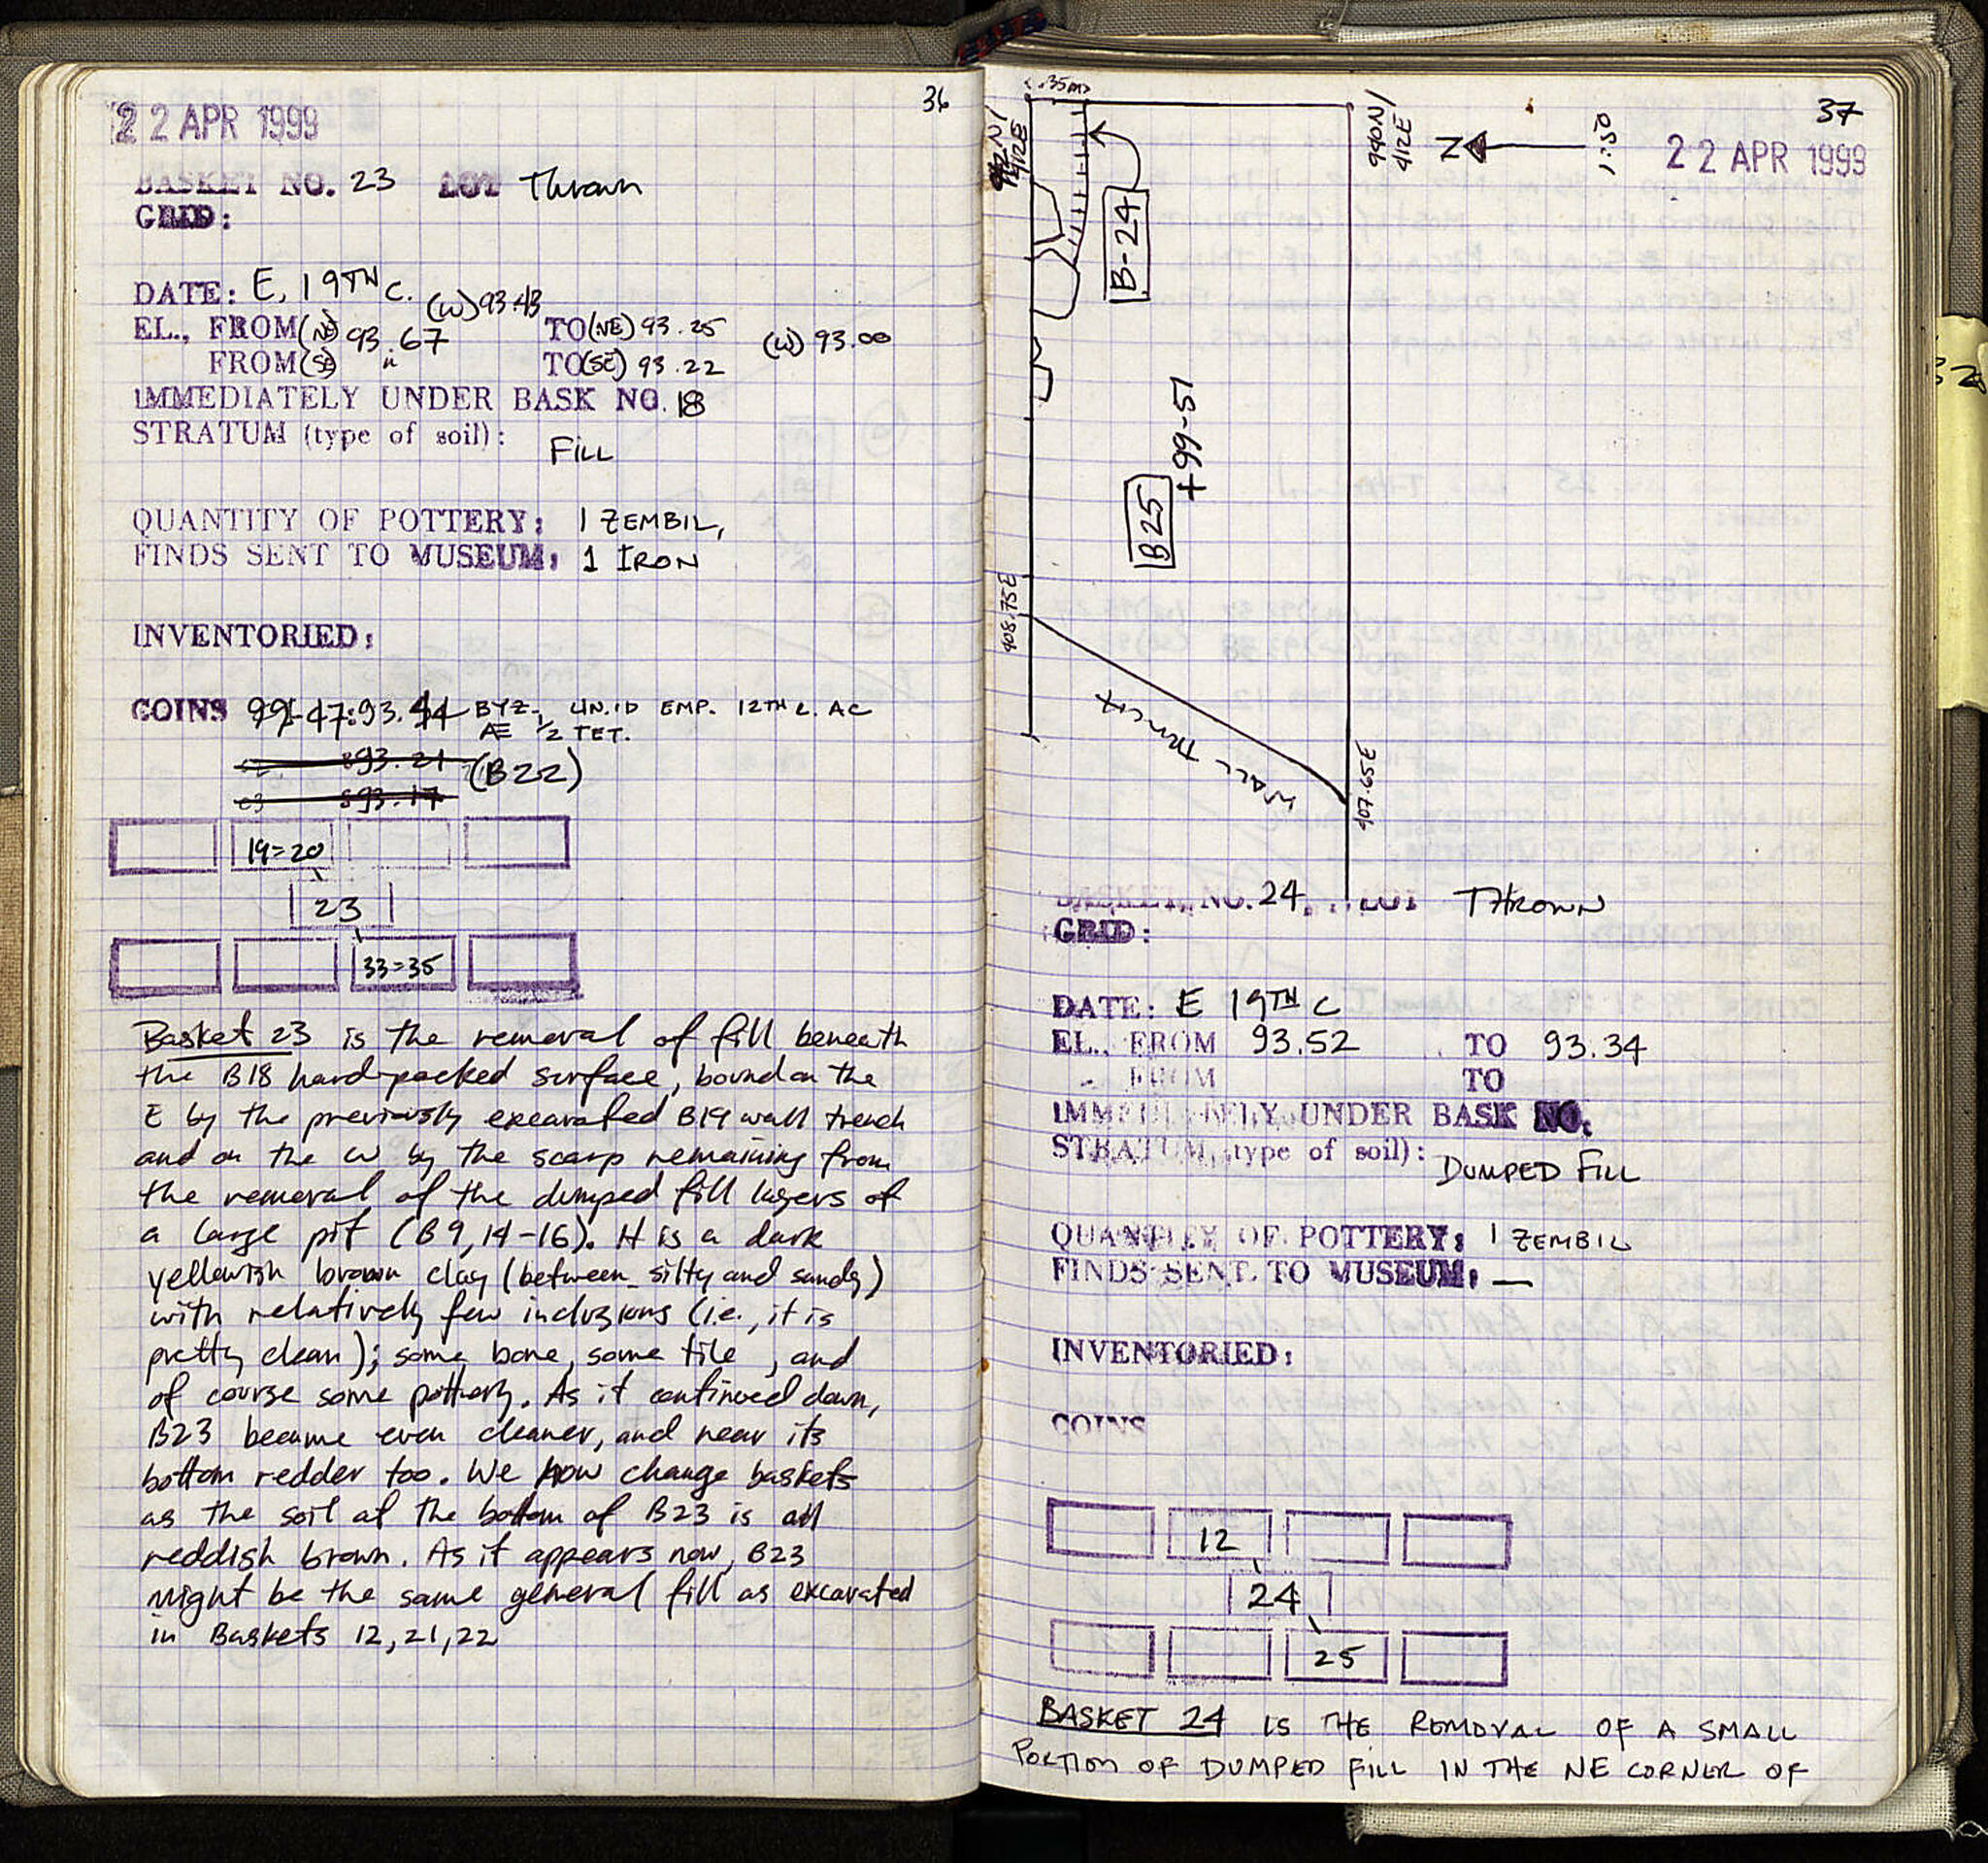 36
22 APR 1999
BASKET NO. 23 LOT Thrown
GRID:
DATE: E, 19TH C.
(W) 93.43
EL., FROM (NE) 93.67 TO (NE) 93.25 (W) 93.00
FROM (SE) " TO (SE) 93.22
IMMEDIATELY UNDER BASK NO. 18
STRATUM (type of soil):
FILL
QUANTITY OF POTTERY: 1 ZEMBIL,
FINDS SENT TO MUSEUM: 1 IRON
INVENTORIED:
COINS 99-47: 93.44 BYZ., UN.ID EMP. 12TH C. AC
Æ 1/2 TET.
93.21
(B22)
93.17
19=20
23
33=35
Basket 23 is the removal of fill beneath
the B18 hard-packed surface, bound on the
E by the previously excavated B19 wall trench
and on the W by the scarp remaining from
the removal of the dumped fill layers of
a large pit (B9,14-16). It is a dark
yellowish brown clay (between silty and sandy)
with relatively few inclusions (i.e., it is
pretty clean); some bone, some tile, and
of course some pottery. As it continued down,
B23 became even cleaner, and near its
bottom redder too. We now change baskets
as the soil at the bottom of B23 is all
reddish brown. As it appears now, B23
might be the same general fill as excavated
in Baskets 12,21,22
.35m
37
412E
940N/
412E
N
1:50
22 APR 1999
B-24
+99-51
B25
408.75E
WALL TRENCH
407.65E
BASKET NO. 24 LOT THROWN
GRID:
DATE: E 19TH C
EL., FROM 93.52 TO 93.34
FROM TO
IMMEDIATELY UNDER BASK NO.
STRATUM, (type of soil):
DUMPED FILL
QUANTITY OF POTTERY: 1 ZEMBIL
FINDS SENT TO MUSEUM: —
INVENTORIED:
COINS
12
24
25
BASKET 24 IS THE REMOVAL OF A SMALL
PORTION OF DUMPED FILL IN THE NE CORNER OF